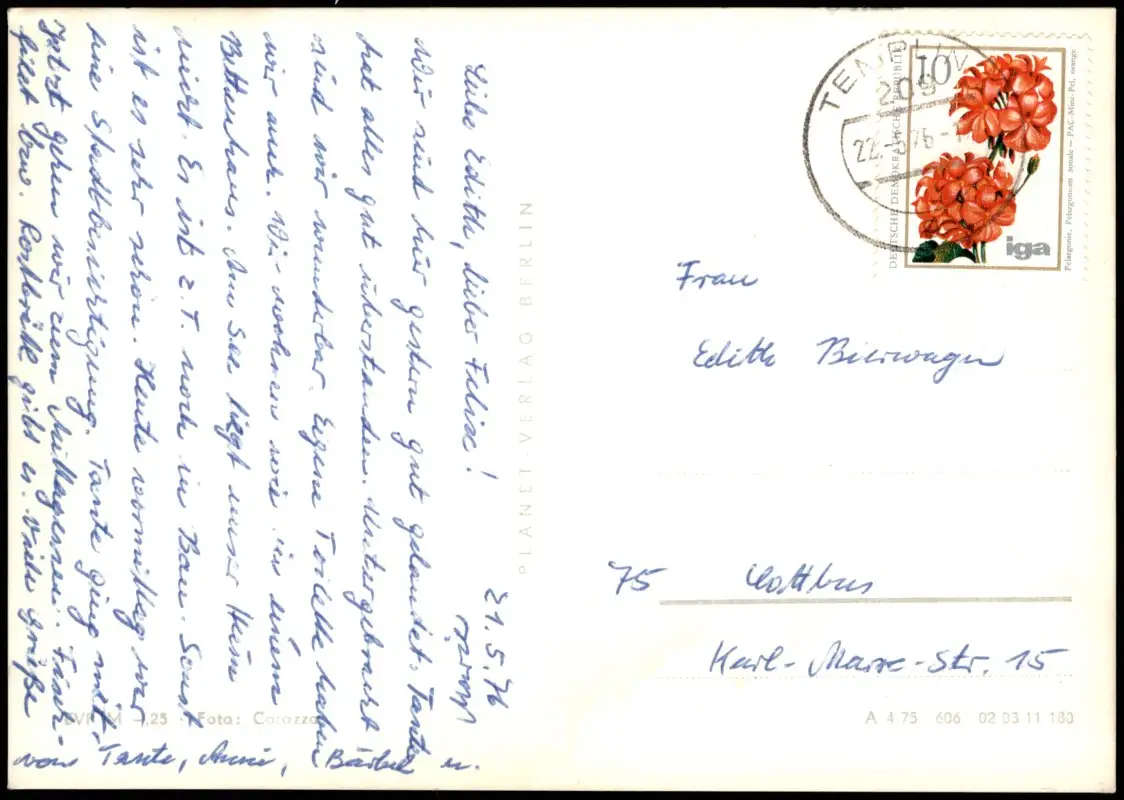 21.5.76
Liebe Edith, lieber Felix!
Wir sind hier gestern gut gelandet. Tante
hat alles gut überstanden. Untergebracht
sind wir wunderbar. Eigene Toilette haben
wir auch. Wir wohnen wie in einem
Bettenhaus. Am See liegt unser Heim
Es ist z.T. noch in Bau. Sonst
ist es sehr schön. Heute vormittag war
eine Stadtbesichtigung. Tante ging mit.
Jetzt gehen wir zum Mittagessen. Fisch-
filet bzw. gibt es. Viele Grüße
von Tante, Anni, Bärbel u.
PLANET-VERLAG BERLIN
EVP M -,25 Foto: Corazza
TEMPLIN
209
22.-5.76-1
10
DEUTSCHE DEMOKRATISCHE REPUBLIK
Pelargonie, Pelargonium zonale — PAC-Mini-Pel, orange
iga
Frau
Edith Bierwagen
75 Cottbus
Karl-Marx-Str. 15
A 4 75 606 02 03 11 180